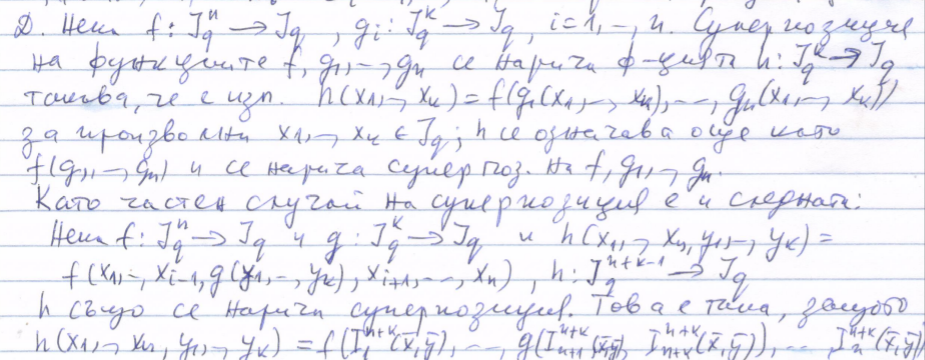 Д. Нека f: J_q^n → J_q , g_i: J_q^k → J_q, i=1,-, n. Суперпозиция
на функциите f, g_1,-, g_n се нарича ф-цията h: J_q^k → J_q
такава, че е изп. h(x_1,-, x_k) = f(g_1(x_1,-, x_k),-, g_n(x_1,-, x_k))
за произволни x_1,-, x_k ∈ J_q; h се означава още като
f(g_1,-, g_n) и се нарича суперпоз. на f, g_1,-, g_n.
Като частен случай на суперпозиция е и следната:
Нека f: J_q^n → J_q и g: J_q^k → J_q и h(x_1,-, x_n, y_1,-, y_k) =
f(x_1,-, x_{i-1}, g(y_1,-, y_k), x_{i+1},-, x_n) , h: J_q^{n+k-1} → J_q
h също се нарича суперпозиция. Това е така, защото
h(x_1,-, x_n, y_1,-, y_k) = f(I_1^{n+k}(x̄,ȳ),-, g(I_{n+1}^{n+k}(x̄,ȳ), I_{n+k}^{n+k}(x̄,ȳ)), -- I_n^{n+k}(x̄,ȳ))